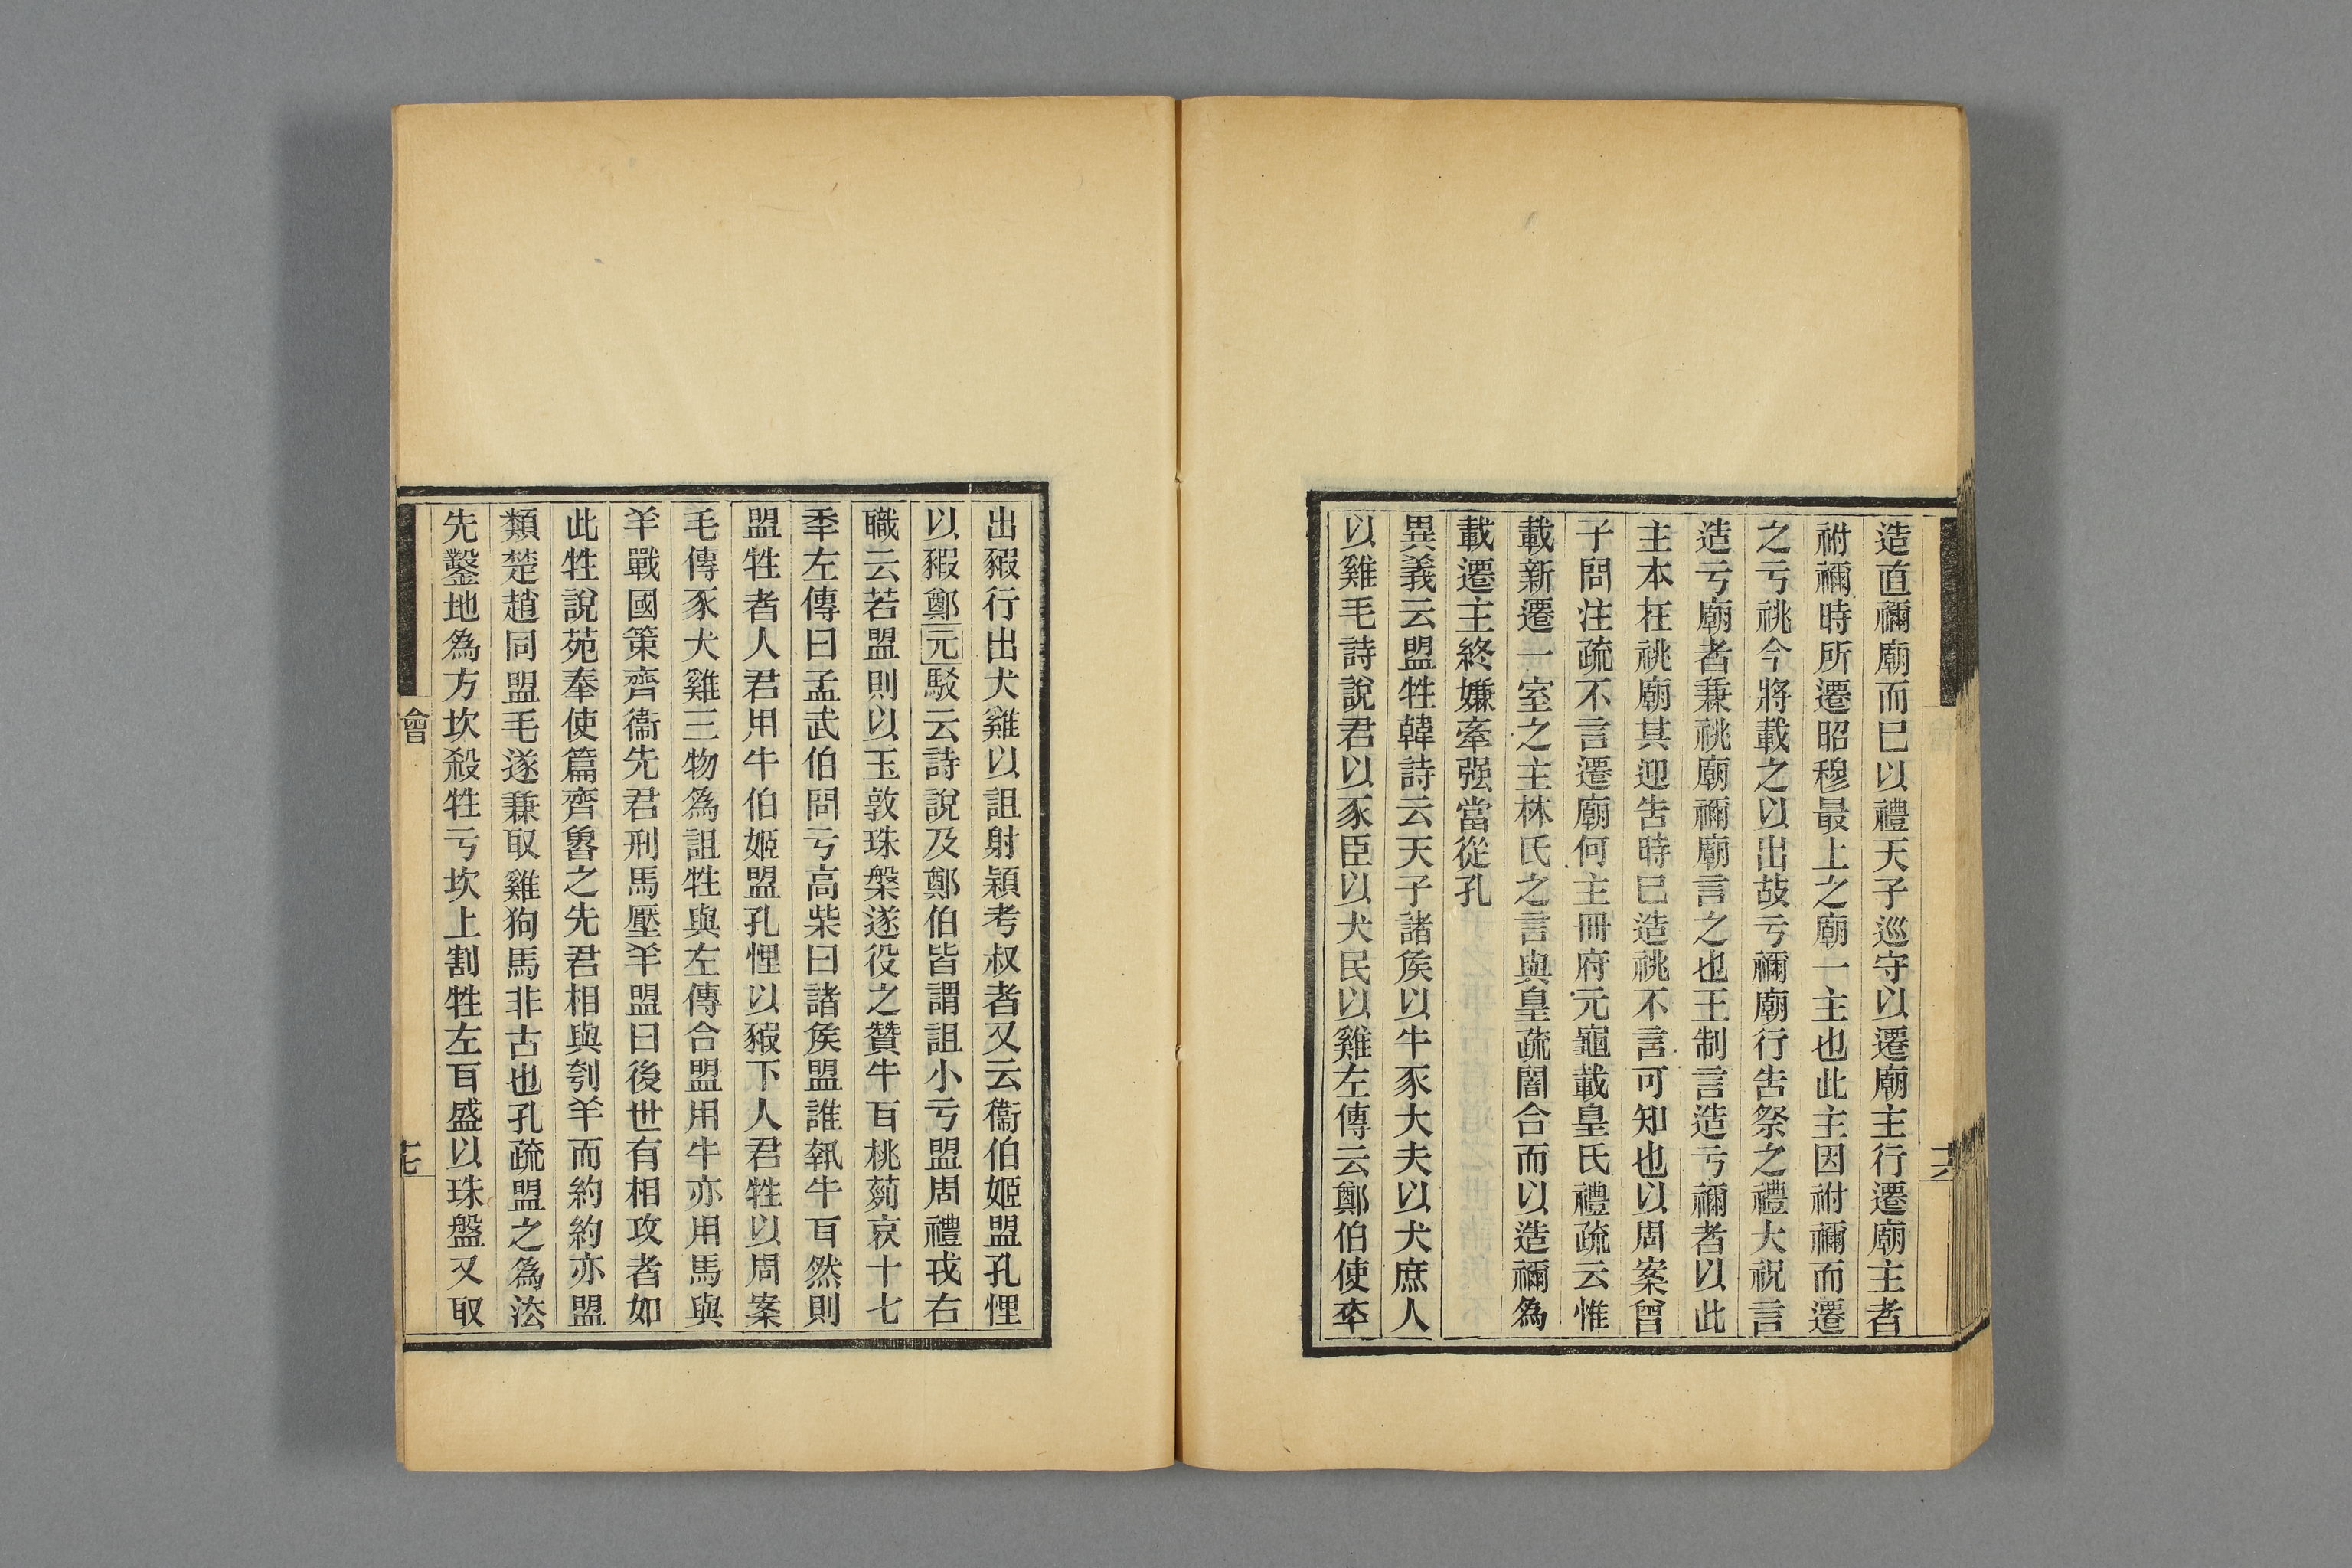 造直禰廟而巳以禮天子巡守以遷廟主行遷廟主者
祔禰時所遷昭穆最上之廟一主也此主因祔禰而遷
之亏祧今將載之以出故亏禰廟行告祭之禮大祝言
造亏廟者兼祧廟禰廟言之也王制言造亏禰者以此
主本在祧廟其迎告時巳造祧不言可知也以周案曾
子問注疏不言遷廟何主冊府元龜載皇氏禮疏云惟
載新遷一室之主林氏之言與皇疏闇合而以造禰為
載遷主終嫌牽强當從孔
異義云盟牲韓詩云天子諸矦以牛豕大夫以犬庶人
以雞毛詩說君以豕臣以犬民以雞左傳云鄭伯使卒
出豭行出犬雞以詛射潁考叔者又云衞伯姬盟孔悝
以豭鄭元駁云詩說及鄭伯皆謂詛小亏盟周禮戎右
職云若盟則以玉敦珠槃遂役之贊牛耳桃茢哀十七
秊左傳曰孟武伯問亏高柴曰諸矦盟誰執牛耳然則
盟牲者人君用牛伯姬盟孔悝以豭下人君牲以周案
毛傳豕犬雞三物為詛牲與左傳合盟用牛亦用馬與
羊戰國策齊衞先君刑馬壓羊盟曰後世有相攻者如
此牲說苑奉使篇齊魯之先君相與刳羊而約約亦盟
類楚趙同盟毛遂兼取雞狗馬非古也孔疏盟之為法
先鑿地為方坎殺牲亏坎上割牲左耳盛以珠盤又取
會
十六
十七